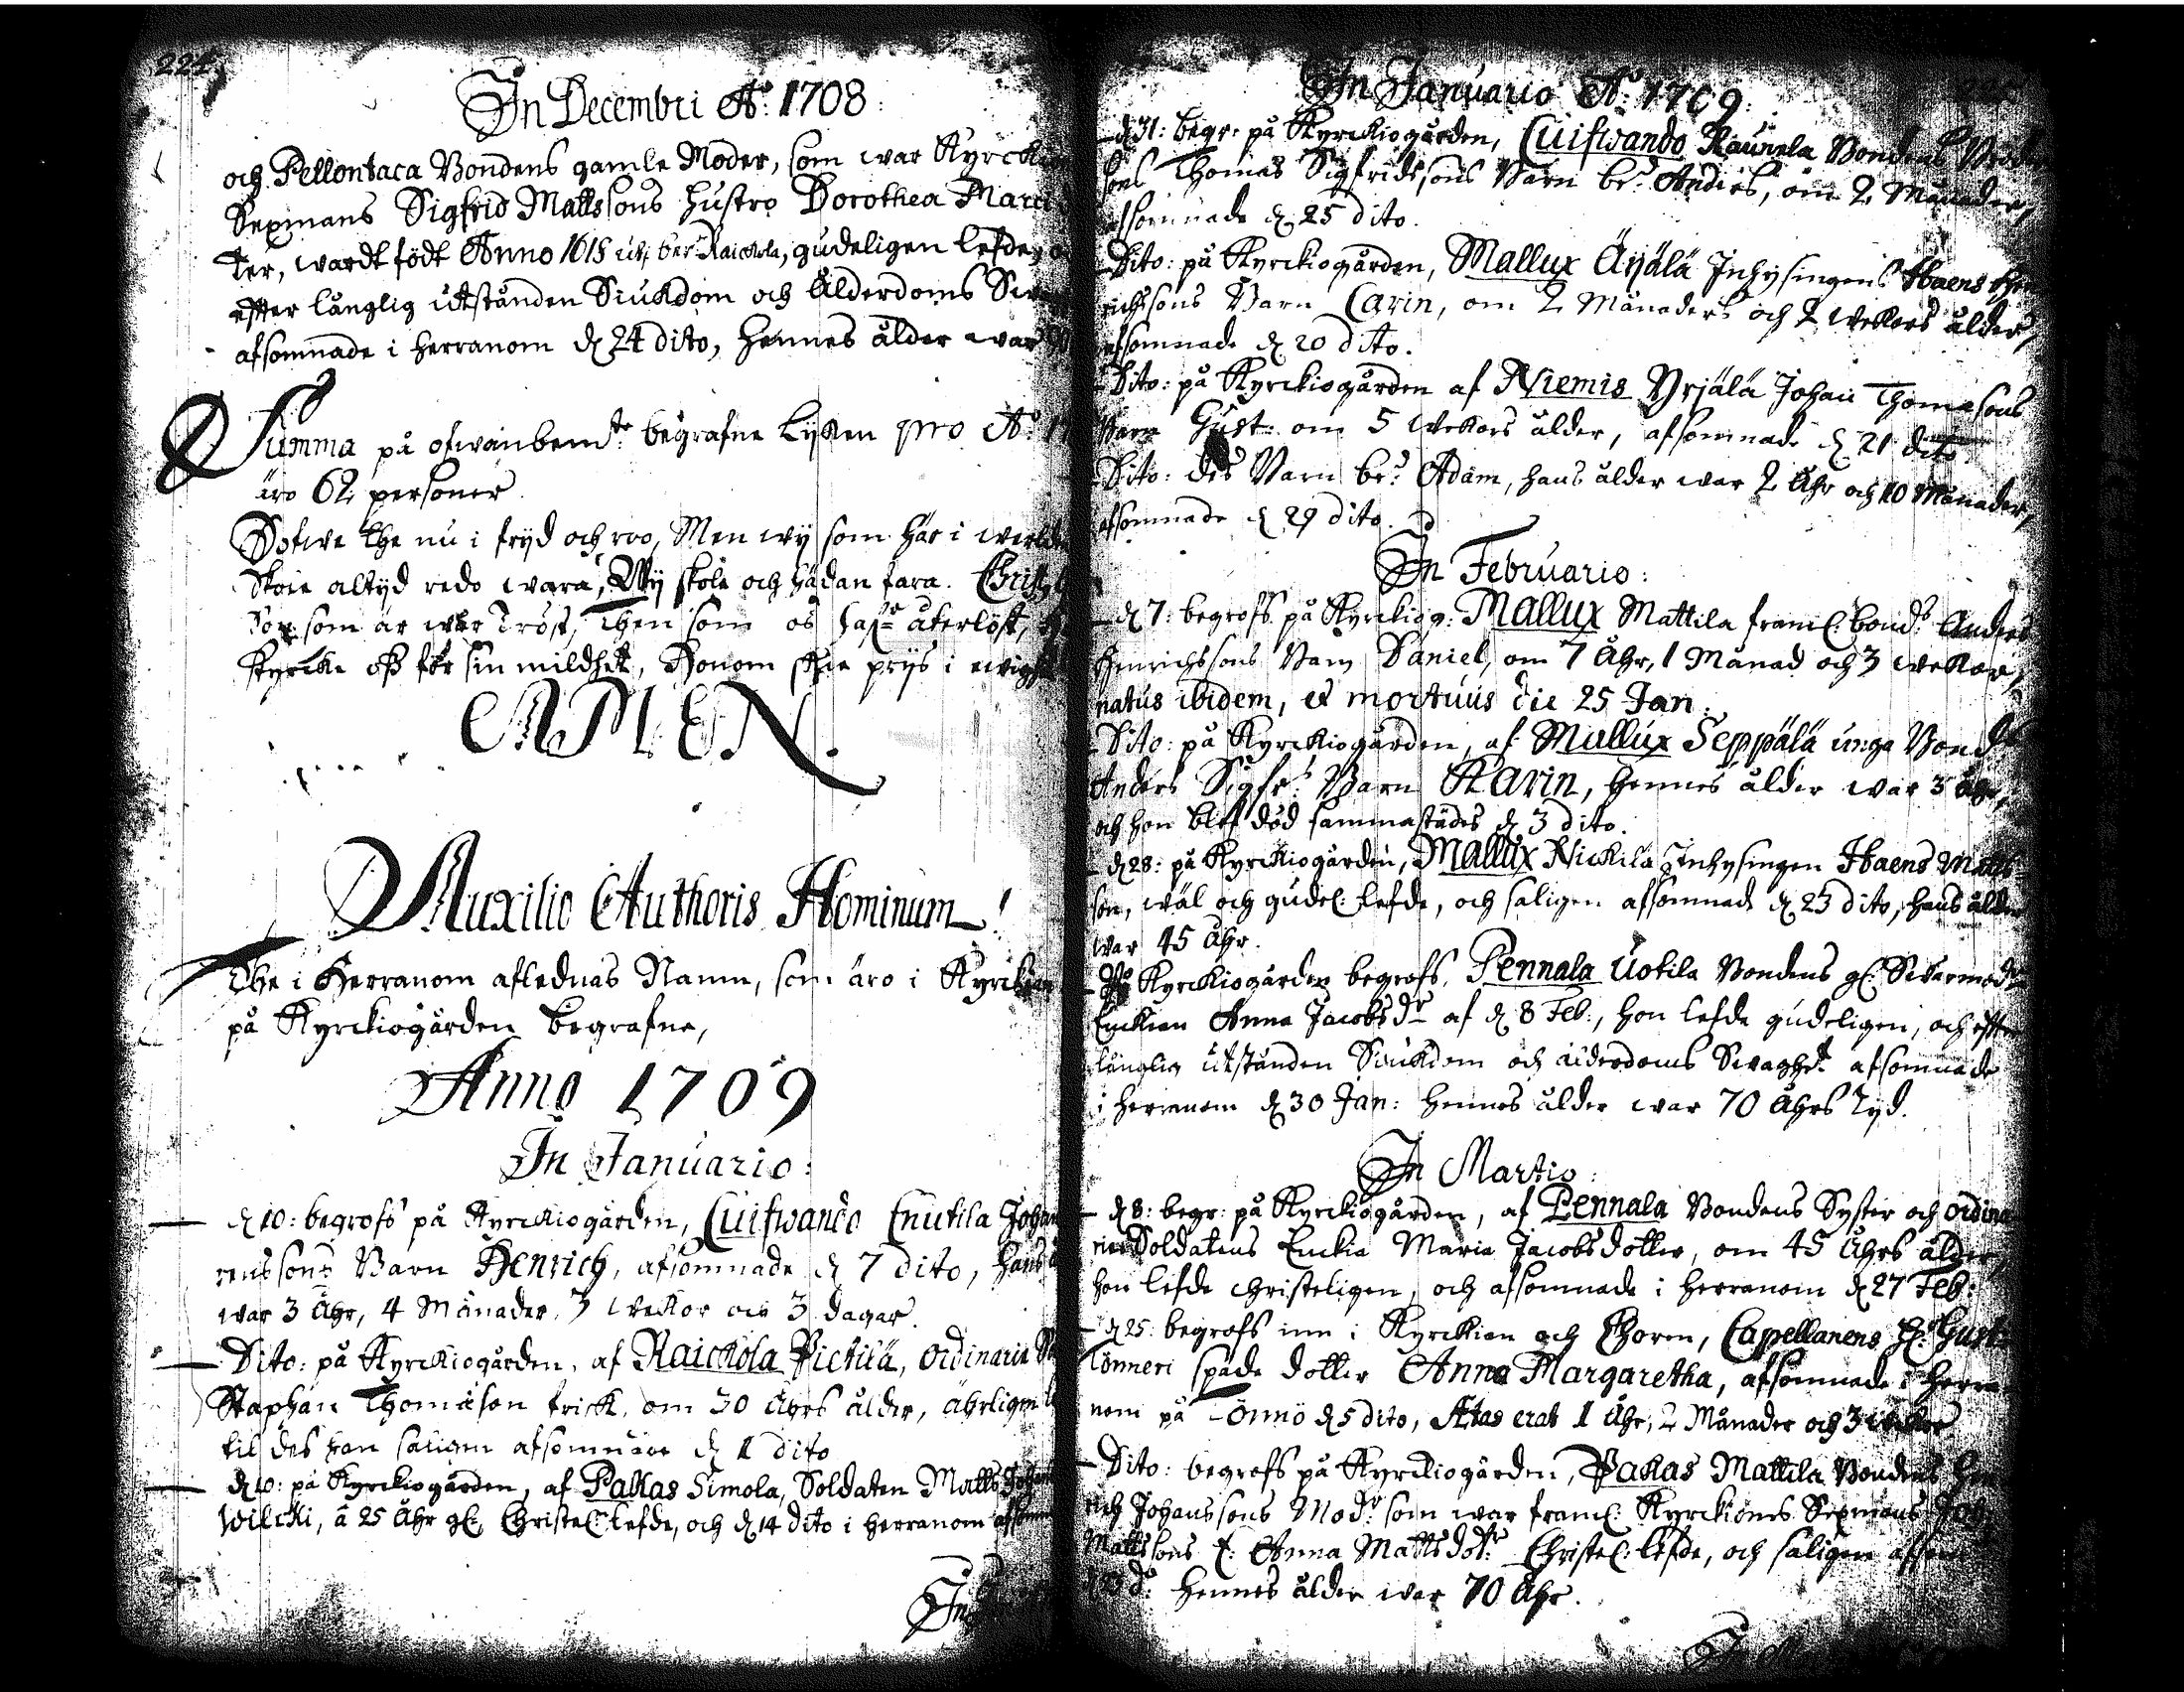 224
In Decembri Aº: 1708:
och Pellontaca Bondens gamle Moder, som war
Sexmans Sigfrid Mattssons hustro Dorothea
ter, wardt född Anno 1618 uthi be:te Raickola, gudeligen lefde,
effter långlig utstånden Siukdom och ålderdoms
afsomnade i herranom d. 24 dito, hennes ålder war
Summa på ofwanbem:te begrafne Lijken pro Aº:
äro 62 personer
Sofwe the nu i fryd och roo, Men wij som här i
Skole altijd redo wara, Wij skole och hädan fara.
som är wår Tröst, Then som os hafr återlöst,
styrcke oss för sin mildhet, Honom skee prijs i
AMEN.
Auxilio Authoris Hominum
The i Herranom aflednas Namn, som äro i
på Kyrckiogården begrafne,
Anno 1709
In Januario:
d. 10: begrofs på Kyrckiogården, Cuifwando Cnutila
renssons Barn Henrich, afsomnade d. 7 dito, hans
war 3 Åhr, 4 Månader, 3 wekor och 3 dagar.
Dito: på Kyrckiogården, af Raickola Pietilä, ordinarie
Staphan Thomason frisk, om 30 åhrs ålder, ährligen
til des han saligen afsomnade d. 1 dito
d. 10: på Kyrckiogården, af Pakas Simola, Soldaten Matts
Wilcki, à 25 Åhr gl: Christel: lefde, och d. 14 dito i herranom
In
In Januario Aº: 1709.
d. 31: begr: på Kyrckiogården, Cuifwando Raurela Bondens
sons Thomas Sigfridssons Barn be:d Anders, om 2 Månader,
afsomnade d. 25 dito.
Dito: på Kyrckiogården, Mallux Äijälä Inhysingens Haens
richssons Barn Carin, om 2 Månaders och 2 wekors ålder,
afsomnade d. 20 dito.
Dito: på Kyrckiogården af Niemis Yrjälä Johan Thomasons
Barn Gust: om 5 wekors ålder, afsomnade d. 21 dito
Dito: des Barn be:d Adam, hans ålder war 2 Åhr och 10 Månader,
afsomnade d. 29 dito.
In Februario:
d. 7: begrofs på Kyrckiog: Mallux Mattila framl: bond:s Anders
Henrichssons Barn Daniel, om 7 Åhr, 1 Månad och 3 wekor,
natus ibidem, et mortuus die 25 Jan.
Dito: på Kyrckiogården, af Mallux Seppälä unga Bond:s
Anders Sigfr:s Barn Karin, hennes ålder war 3 Åhr,
och hon blef död sammastädes d. 3 dito.
d. 28: på Kyrckiogården, Mallux Nickilä Inhysingen Haens Matts
son, wäl och gudel: lefde, och saligen afsomnade d. 23 dito, hans ålder
war 45 Åhr.
På Kyrckiogården begrofs, Pennala Uotila Bondens gl: Swärmod:r
Enckian Anna Jacobsd:r af d. 8 Feb:, hon lefde gudeligen, och effter
långlig utstånden Siukdom och ålderdoms Swaghet afsomnade
i herranom d. 30 Jan: hennes ålder war 70 Åhrs Tyd.
In Martio:
d. 8: begr: på Kyrckiogården, af Pennala Bondens Syster och ordina
rie Soldatens Enckia Maria Jacobsdotter, om 45 Åhrs ålder,
hon lefde christeligen, och afsomnade i herranom d. 27 Feb:
d. 25: begrofs inn i Kyrckian och Choren, Capellanens H:r Gust:
Tönneri späde dotter Anna Margaretha, afsomnade i herra
nom på Önnö d. 5 dito, Ætas erat 1 Åhr, 2 Månader och 3 wekor
Dito: begrofs på Kyrckiogården, Pakas Mattila Bondens Hen
rich Johanssons Mod:r som war framl: Kyrckiones Sexmans Joh:
Mattssons E: Anna Mattsdot:r Christel: lefde, och saligen
hennes ålder war 70 Åhr.